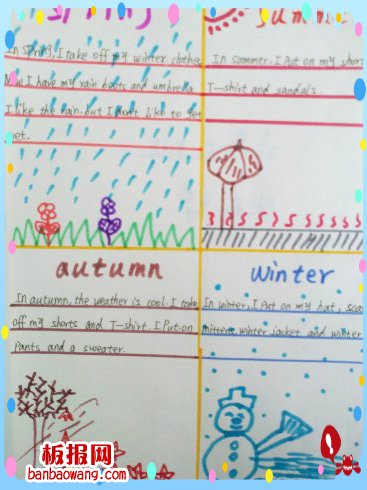 spring
In spring, I take off my winter clothe
Now I have my rain boots and umbrella
I like the rain. but I don't like to get
wet.
summe
In summer, I Put on my shor
T-shirt and sandals.
autumn
In autumn, the weather is cool. I take
off my shorts and T-shirt. I Put on
pants and a sweater
winter
In winter, I Put on my hat, sca
mittens, winter jacket and winter
板报网
banbaowang.com